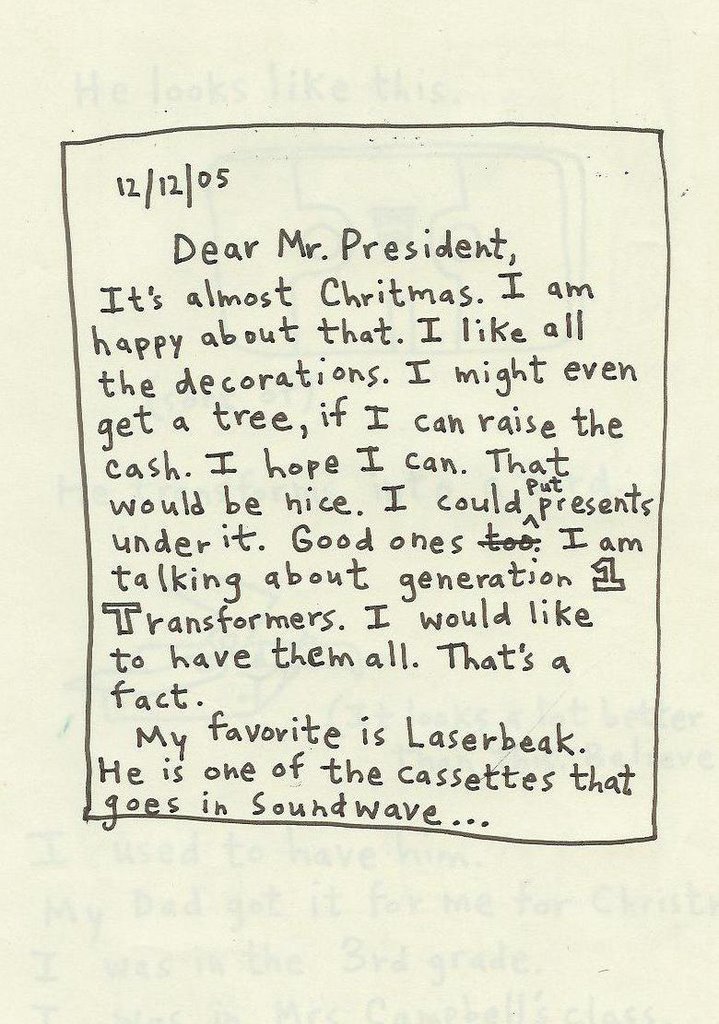 He looks like this.
12/12/05
Dear Mr. President,
It's almost Chritmas. I am
happy about that. I like all
the decorations. I might even
get a tree, if I can raise the
cash. I hope I can. That
would be nice. I could put presents
under it. Good ones too. I am
talking about generation 1
Transformers. I would like
to have them all. That's a
fact.
My favorite is Laserbeak.
He is one of the cassettes that
goes in Soundwave...
I used to have him.
My Dad got it for me for
I was in the 3rd grade.
I was in Mrs. Campbell's class.